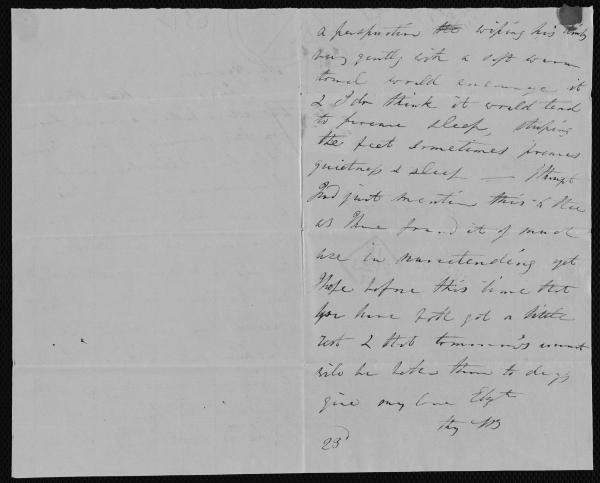 a perspiration the wiping his limbs
very gently with a soft warm
towel would encourage it
& I do think it would tend
to promote sleep, stroking
the feet sometimes promotes
quietness & sleep — I thought
I'd just mention this to thee
as I have found it of much
use in nurse tending yet
I hope before this time that
you have both got a little
rest & that tomorrow's account
will be better than to days
give my love Elizth
thy MB
23d